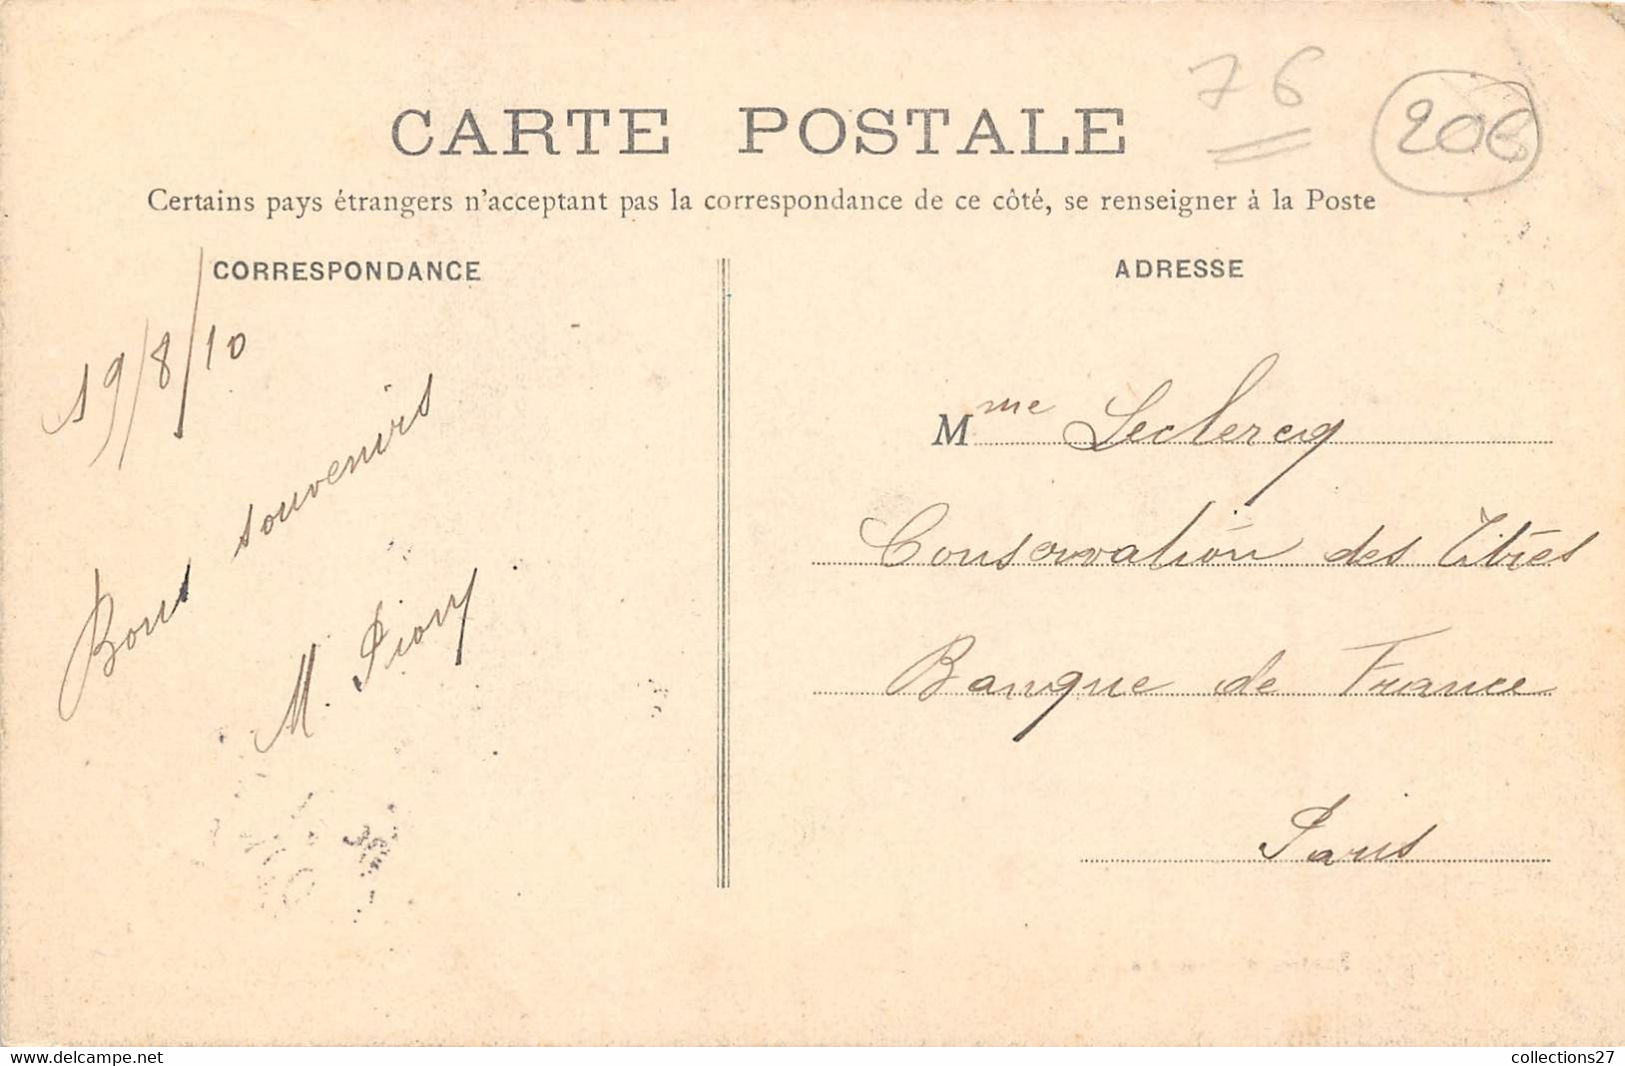 76
CARTE POSTALE
Certains pays étrangers n'acceptant pas la correspondance de ce côté, se renseigner à la Poste
CORRESPONDANCE
19/8/10
Bons souvenirs
M.
ADRESSE
Mme Leclercq
Conservation des Titres
Banque de France
Paris
www.delcampe.net
collections27